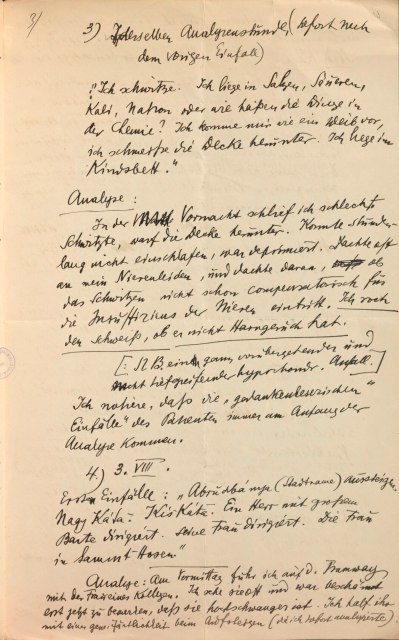 3/
3) In derselben Analysenstunde (sofort nach
dem vorigen Einfall)
"Ich schwitze. Ich liege in Salzen, Säueren,
Kali, Natron oder wie haißen die Dinge in
der Chemie? Ich komme mir wie ein Weib vor,
ich schmeiße die Decke herunter. Ich liege im
Kindsbett."
Analyse:
In der Vornacht schlief ich schlecht
Schwitzte, warf die Decke herunter. Konnte stunden-
lang nicht einschlafen, war deprimiert. Dachte oft
an mein Nierenleiden, und dachte daran, ob
das Schwitzen nicht schon compensatorisch für
die Insuffizienz der Nieren eintritt. Ich roch
den Schweiß, ob er nicht Harngeruch hat.
[: N.B. ein ganz vorübergehender und
nicht tiefgreifender hypochondr. Anfall.]
Ich notiere, daß die "gedankenleserischen"
Einfälle" des Patienten immer am Anfang der
Analyse kommen.
4) 3. VIII.
Erste Einfälle: "Abrudbánya (Stadtname) aussteigen.
Nagy Káta. Kis Káta. Ein Herr mit großem
Barte dirigiert. Seine Frau dirigiert. Die Frau
in Sammt Hosen"
Analyse: Am Vormittag fuhr ich auf d. Tramway
mit der Frau eines Kollegen. Ich sehe sie oft und war
erst jetzt zu bemerken, daß sie hochschwanger ist. Ich half ihr
mit einer gew. Zärtlichkeit beim Aufsteigen (die ich sofort analysierte).